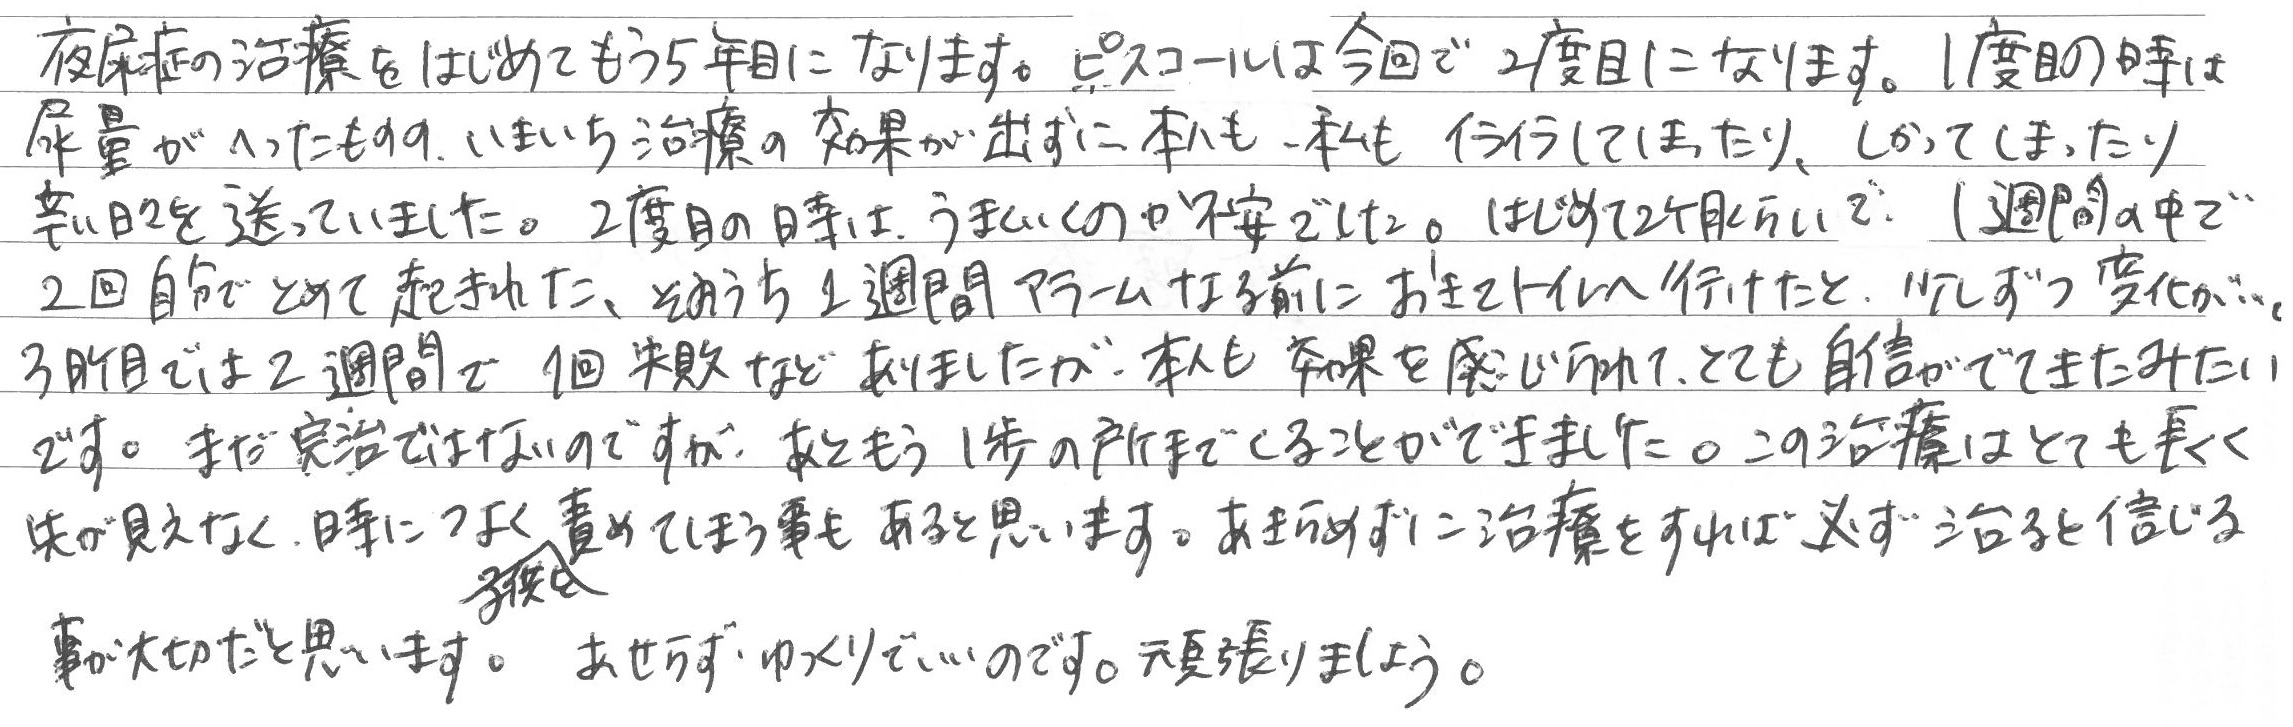 夜尿症の治療をはじめてもう5年目になります。ピスコールは今回で2度目になります。1度目の時は
尿量がへったものの、いまいち治療の効果が出ずに本人も、私もイライラしてしまったり、しかってしまったり
辛い日々を送っていました。2度目の時は、うまくいくのか不安でした。はじめて2ケ月くらいで、1週間の中で
2回自分でとめて起きれた、そのうち1週間アラームなる前におきてトイレへ行けたと、少しずつ変化が…。
3ケ月目では2週間で1回失敗などありましたが、本人も効果を感じられて、とても自信がでてきたみたい
です。まだ完治ではないのですが、あともう1歩の所までくることができました。この治療はとても長く
先が見えなく、時につよく子供を責めてしまう事もあると思います。あきらめずに治療をすれば必ず治ると信じる
事が大切だと思います。あせらず、ゆっくりでいいのです。頑張りましょう。